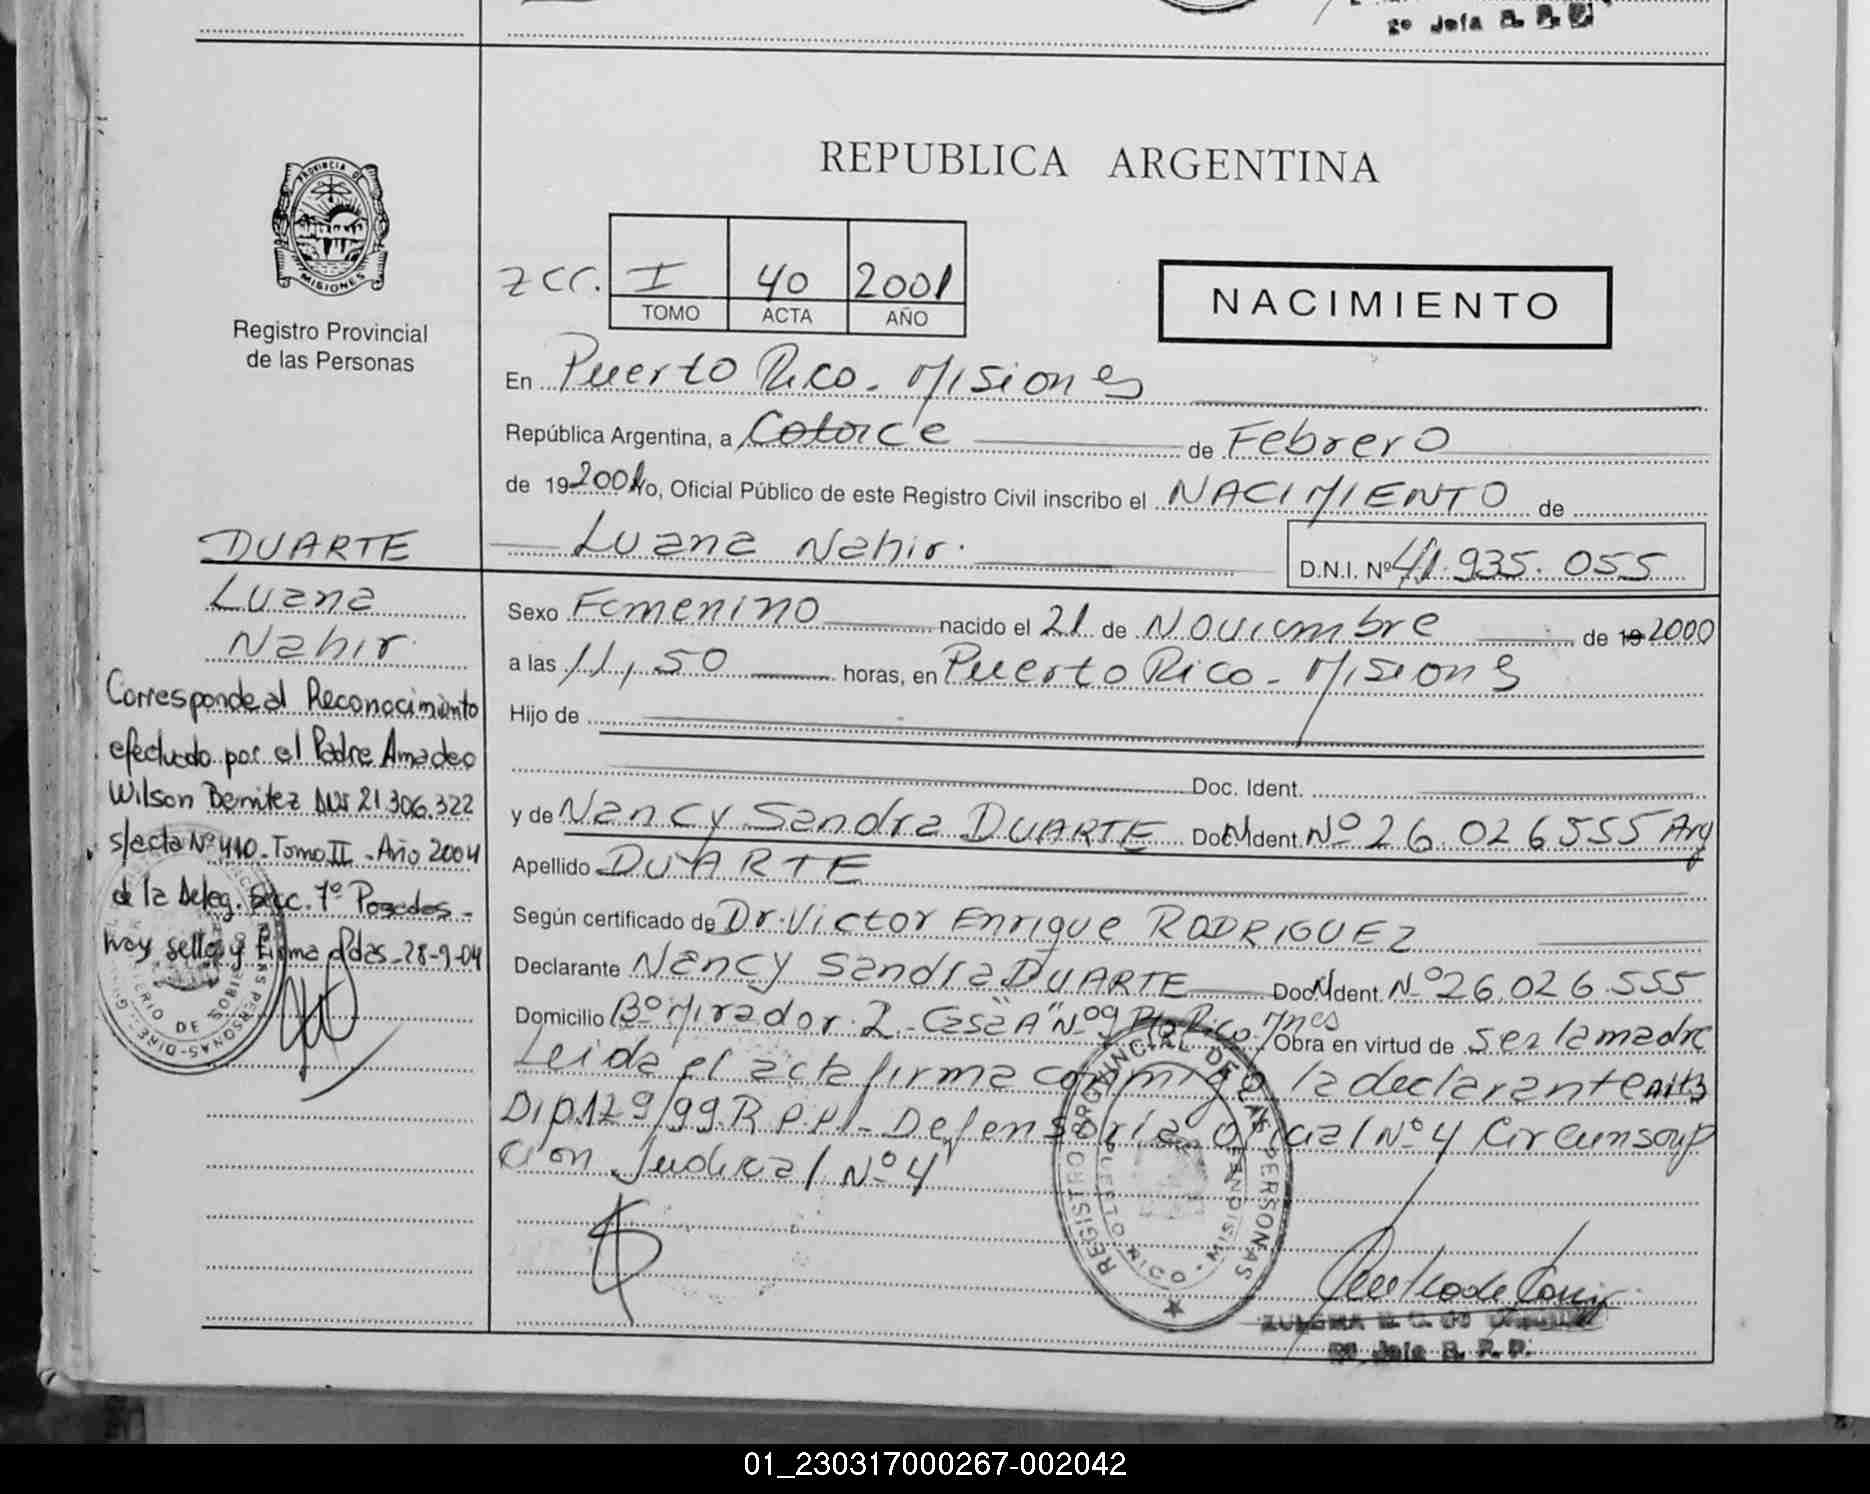 2º Jefa R. P. P.
REPUBLICA ARGENTINA
PROVINCIA DE
MISIONES
Registro Provincial
de las Personas
zcc. I 40 2001
TOMO ACTA AÑO
NACIMIENTO
En Puerto Rico - Misiones
República Argentina, a Catorce de Febrero
de 19 2001 Yo, Oficial Público de este Registro Civil inscribo el NACIMIENTO de
Luana Nahir.
D.N.I. Nº 41.935.055
DUARTE
Luana
Nahir.
Corresponde al Reconocimiento
efectuado por el Padre Amadeo
Wilson Benitez DNI 21.306.322
s/acta Nº 410 - Tomo II - Año 2004
de la Deleg. Secc. 7º Posadas -
hay sello y Firma Pdas - 28-9-04
Sexo Femenino nacido el 21 de Noviembre de 19 2000
a las 11,50 horas, en Puerto Rico - Misiones
Hijo de
Doc. Ident.
y de Nancy Sandra DUARTE Doc. Ident. Nº 26.026.555 Arg
Apellido DUARTE
Según certificado de Dr. Victor Enrique RODRIGUEZ
Declarante Nancy Sandra DUARTE Doc. Ident. Nº 26.026.555
Domicilio Bº Mirador 2 - Casa "A" Nº 09 Pto Rico. Mnes Obra en virtud de ser la madre
Leida el acta firma conmigo la declarante
Disp. 129/99. R.P.P. - Defensoria oficial Nº 4 Circunscrip
cion Judicial Nº 4
REGISTRO PROVINCIAL DE LAS PERSONAS
PUERTO RICO - MISIONES
2º Jefa R. P. P.
01_230317000267-002042